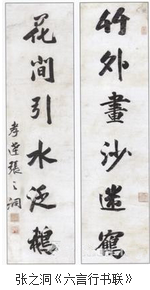 竹外畫沙迷
花間引水泛鵝
孝達張之洞
张之洞《六言行书联》